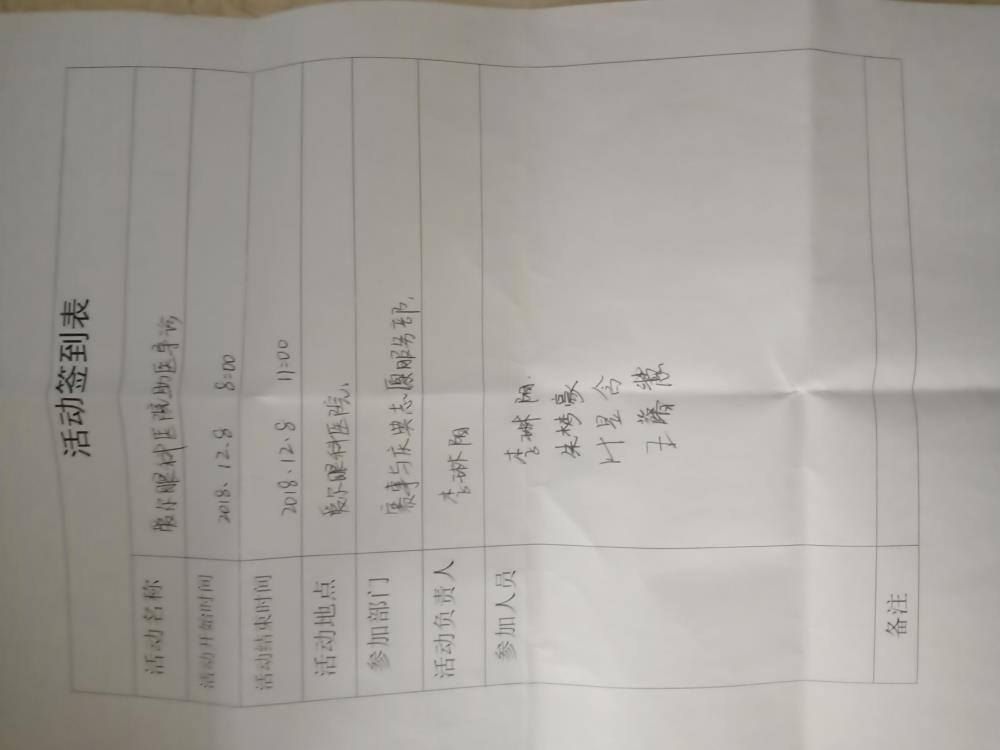 活动签到表
活动名称 爱尔眼科医院助医导诊
活动开始时间 2018.12.8 8:00
活动结束时间 2018.12.8 11:00
活动地点 爱尔眼科医院.
参加部门 赛事与庆典志愿服务部.
活动负责人 李琳阳
参加人员 李琳阳.
朱梦豪
叶昱含
王馨慧
备注